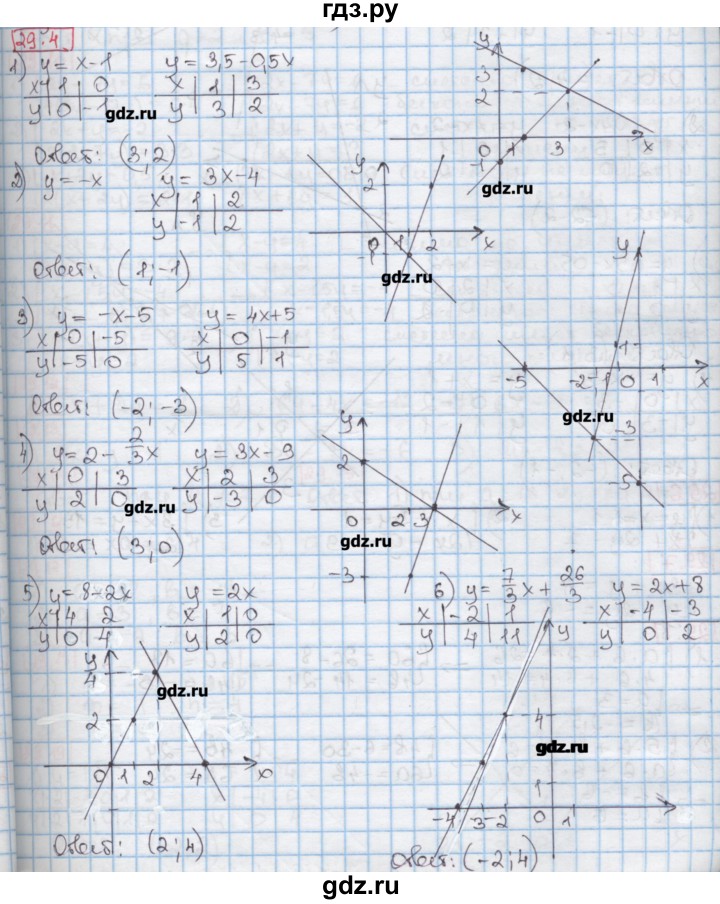 гдз.ру
29.4.
1) y = x-1    y = 3,5-0,5x
x | 1 | 0    x | 1 | 3
y | 0 | -1    y | 3 | 2
gdz.ru
Ответ: (3;2)
y
3
2
0 1 3 x
-1
gdz.ru
2) y = -x    y = 3x-4
x | 1 | 2
y | -1 | 2
Ответ: (1;-1)
y
2
0 1 2 x
-1
gdz.ru
3) y = -x-5    y = 4x+5
x | 0 | -5    x | 0 | -1
y | -5 | 0    y | 5 | 1
Ответ: (-2;-3)
y
1
-5 -2 -1 0 1 x
gdz.ru
-3
-5
4) y = 2 - 2/3x    y = 3x-9
x | 0 | 3    x | 2 | 3
y | 2 | 0    y | -3 | 0
gdz.ru
Ответ: (3;0)
y
2
0 2 3 x
gdz.ru
-3
5) y = 8-2x    y = 2x
x | 4 | 2    x | 1 | 0
y | 0 | 4    y | 2 | 0
y
4
gdz.ru
2
0 1 2 4 x
Ответ: (2;4)
6) y = 7/3x + 26/3    y = 2x+8
x | -2 | 1    x | -4 | -3
y | 4 | 11    y | 0 | 2
y
4
gdz.ru
1
-4 -3 -2 0 1
Ответ: (-2;4)
gdz.ru